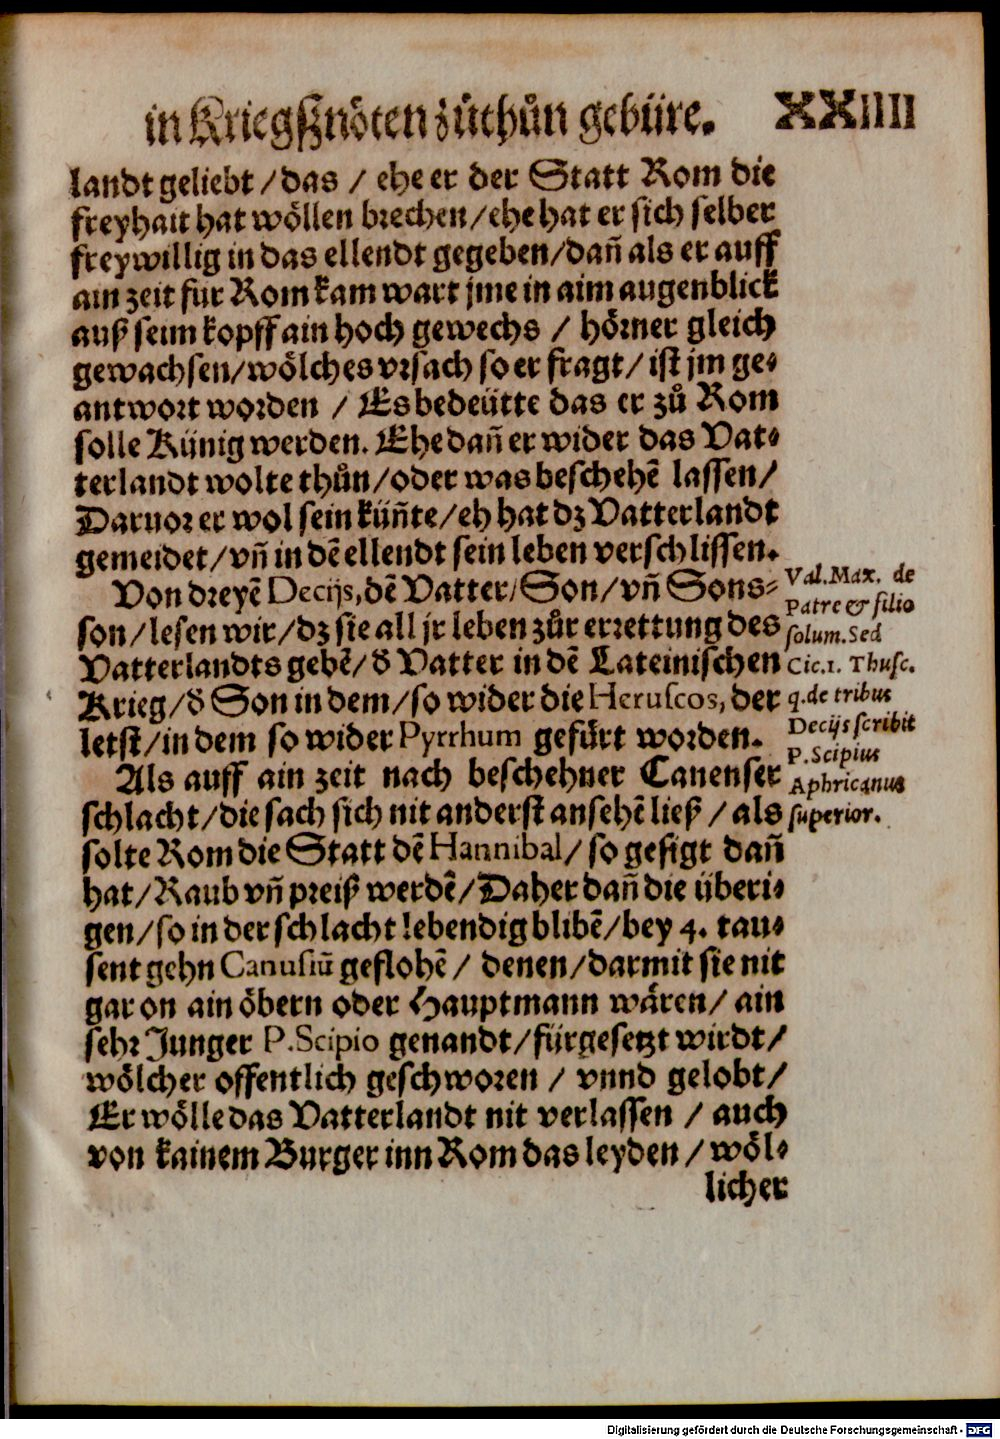 in Kriegßnöten zůthůn gebüre. XXIIII
landt geliebt / das / ehe er der Statt Rom die
freyhait hat wöllen brechen / ehe hat er sich selber
freywillig in das ellendt gegeben / dañ als er auff
ain zeit für Rom kam wart jme in aim augenblick
auß seim kopff ain hoch gewechs / hörner gleich
gewachsen / wölches vrsach so er fragt / ist jm ge⸗
antwort worden / Es bedeütte das er zů Rom
solle Künig werden. Ehe dañ er wider das Vat⸗
terlandt wolte thůn / oder was beschehē lassen /
Daruor er wol sein küñte / eh hat dz Vatterlandt
gemeidet / vñ in dē ellendt sein leben verschlissen.
Von dreyē Decijs, dē Vatter / Son / vñ Sons⸗
son / lesen wir / dz sie all jr leben zůr errettung des
Vatterlandts gebē / d̄ Vatter in dē Lateinischen
Krieg / d̄ Son in dem / so wider die Heruscos, der
letst / in dem so wider Pyrrhum gefůrt worden.
Als auff ain zeit nach beschehner Canenser
schlacht / die sach sich nit anderst ansehē ließ / als
solte Rom die Statt dē Hannibal / so gesigt dañ
hat / Raub vñ preiß werdē / Daher dañ die überi⸗
gen / so in der schlacht lebendig blibē / bey 4. tau⸗
sent gehn Canusiū geflohē / denen / darmit sie nit
gar on ain öbern oder Hauptmann wären / ain
sehr Junger P. Scipio genandt / fürgesetzt wirdt /
wölcher offentlich geschworen / vnnd gelobt /
Er wölle das Vatterlandt nit verlassen / auch
von kainem Burger inn Rom das leyden / wöl⸗
licher
Val. Max. de
Patre & filio
solum. Sed
Cic. 1. Thusc.
q. de tribus
Decijs scribit
P. Scipius
Aphricanus
superior.
Digitalisierung gefördert durch die Deutsche Forschungsgemeinschaft - DFG